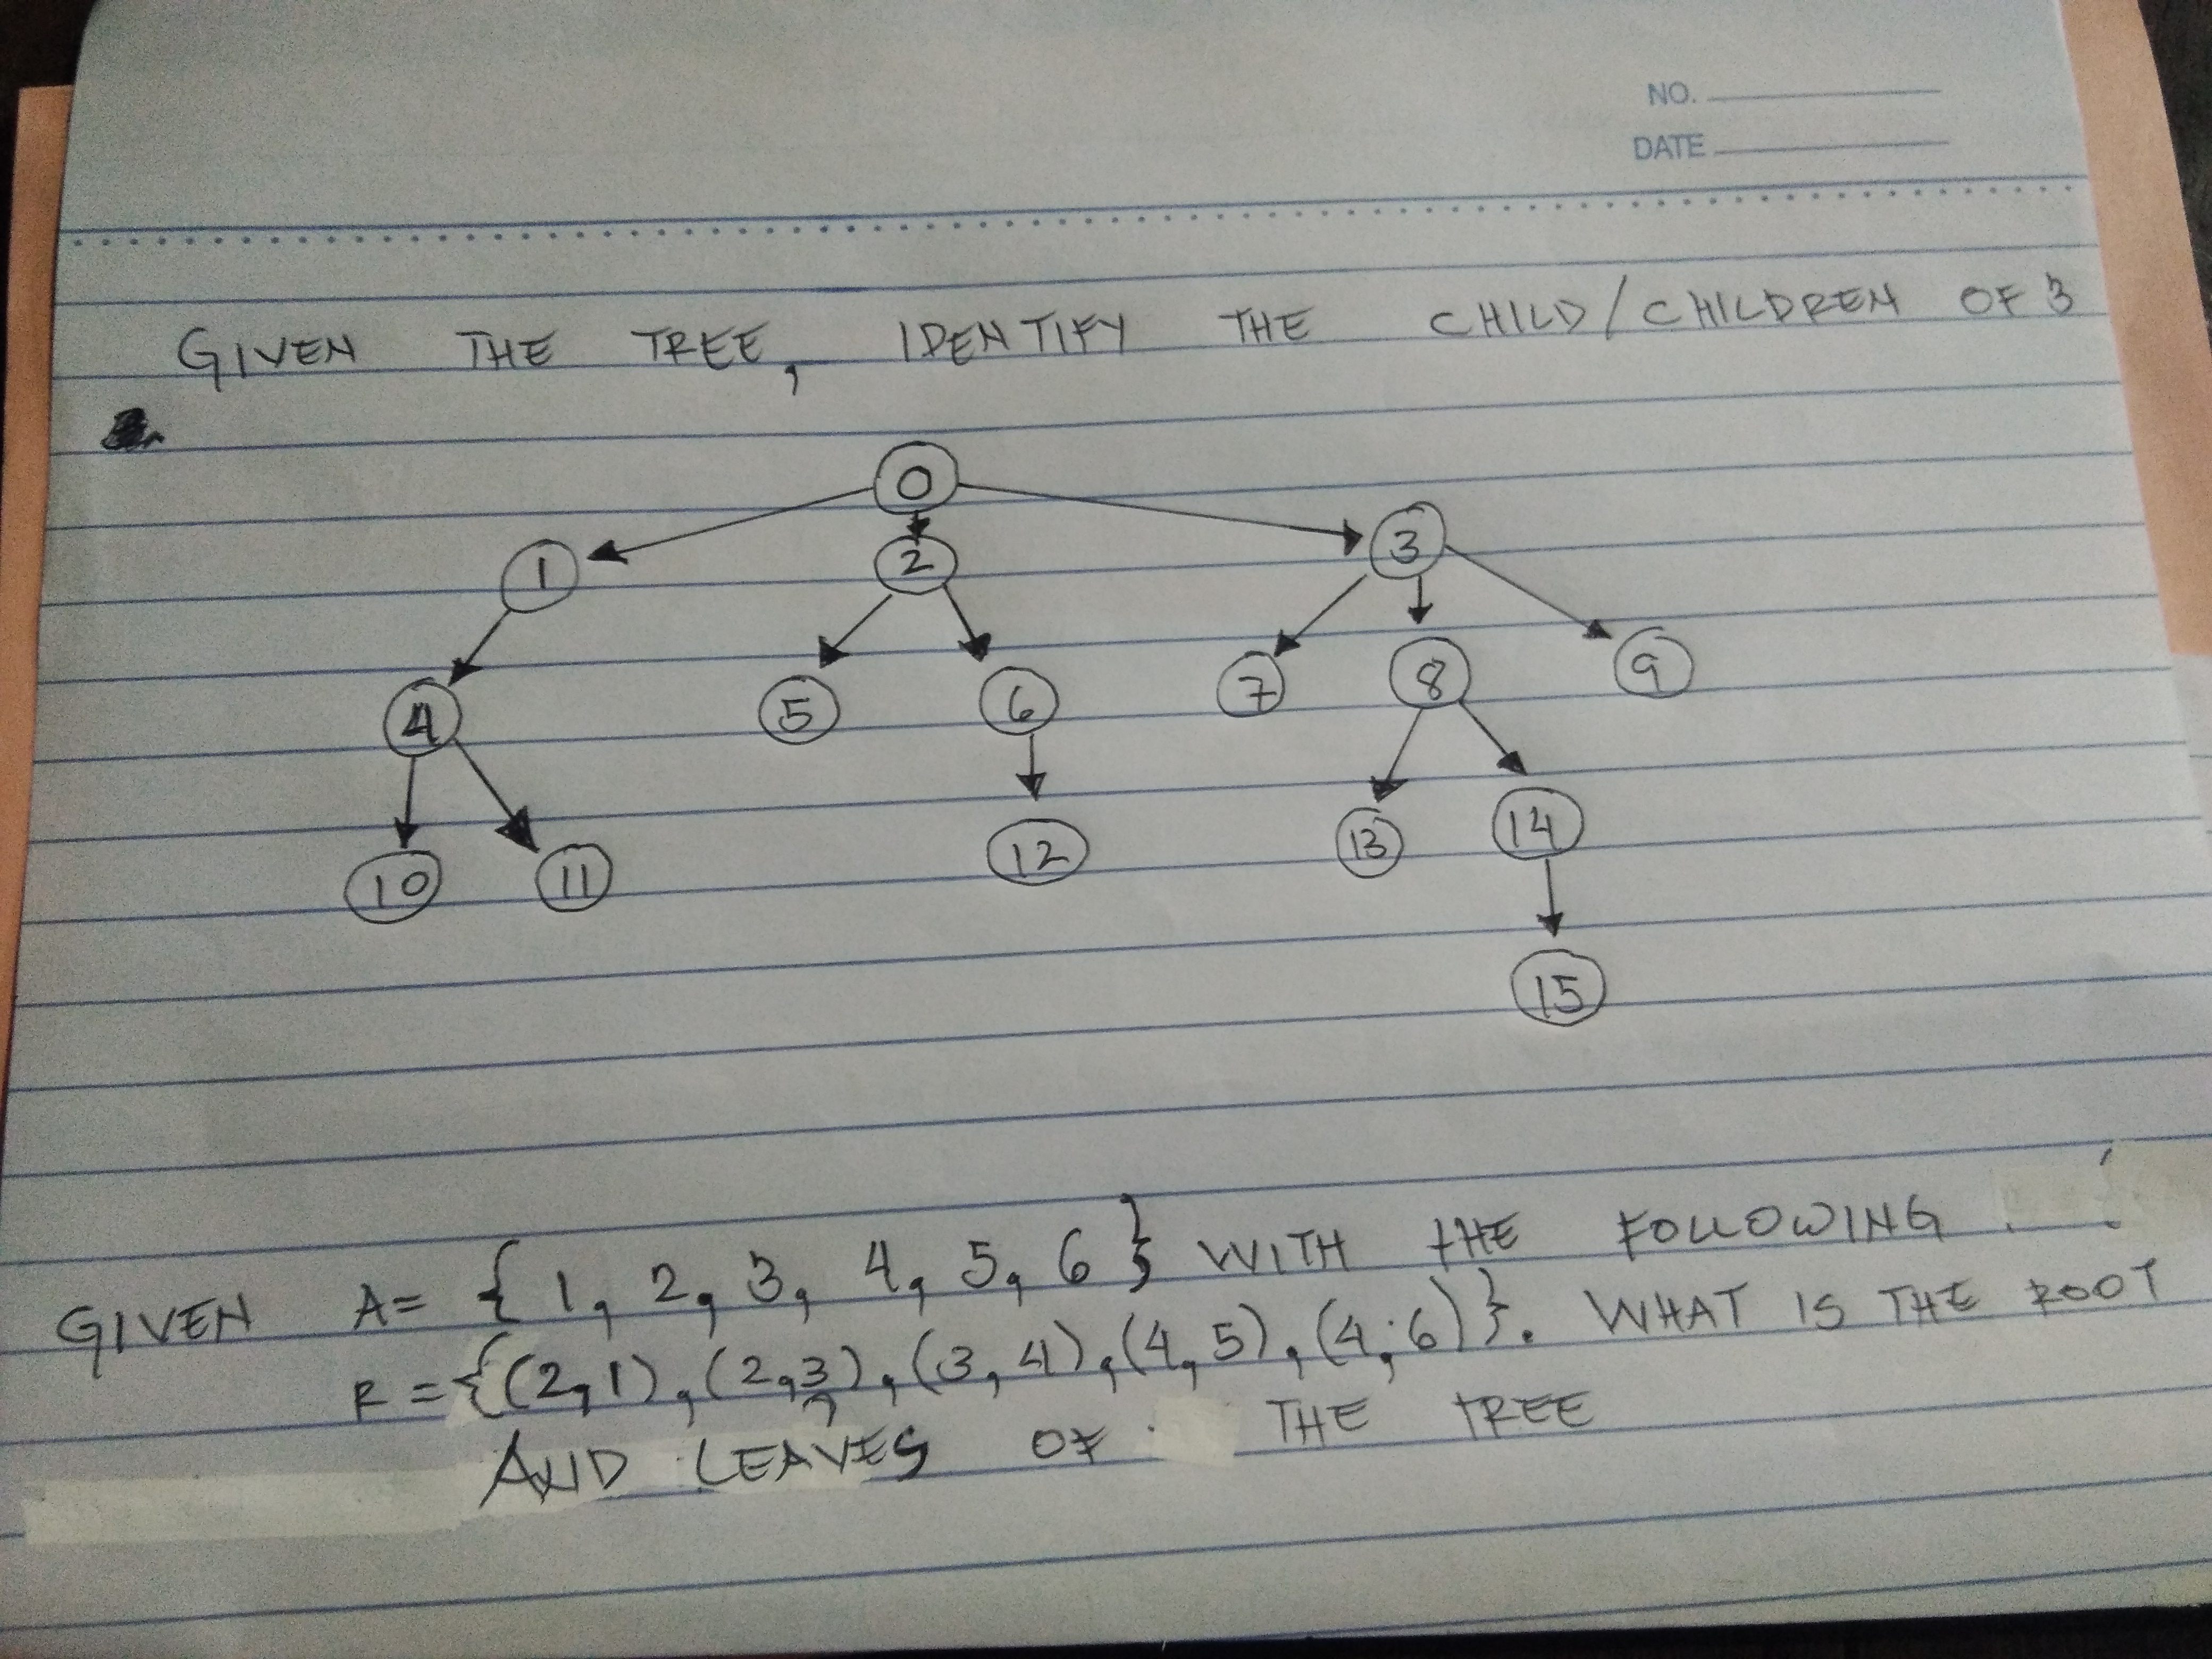 NO.
DATE
GIVEN THE TREE, IDENTIFY THE CHILD/CHILDREN OF 3
0
1 2 3
4 5 6 7 8 9
10 11 12 13 14
15
GIVEN A= { 1, 2, 3, 4, 5, 6 } WITH THE FOLLOWING
R = {(2,1), (2,3), (3,4), (4,5), (4,6)}. WHAT IS THE ROOT
AND LEAVES OF THE TREE